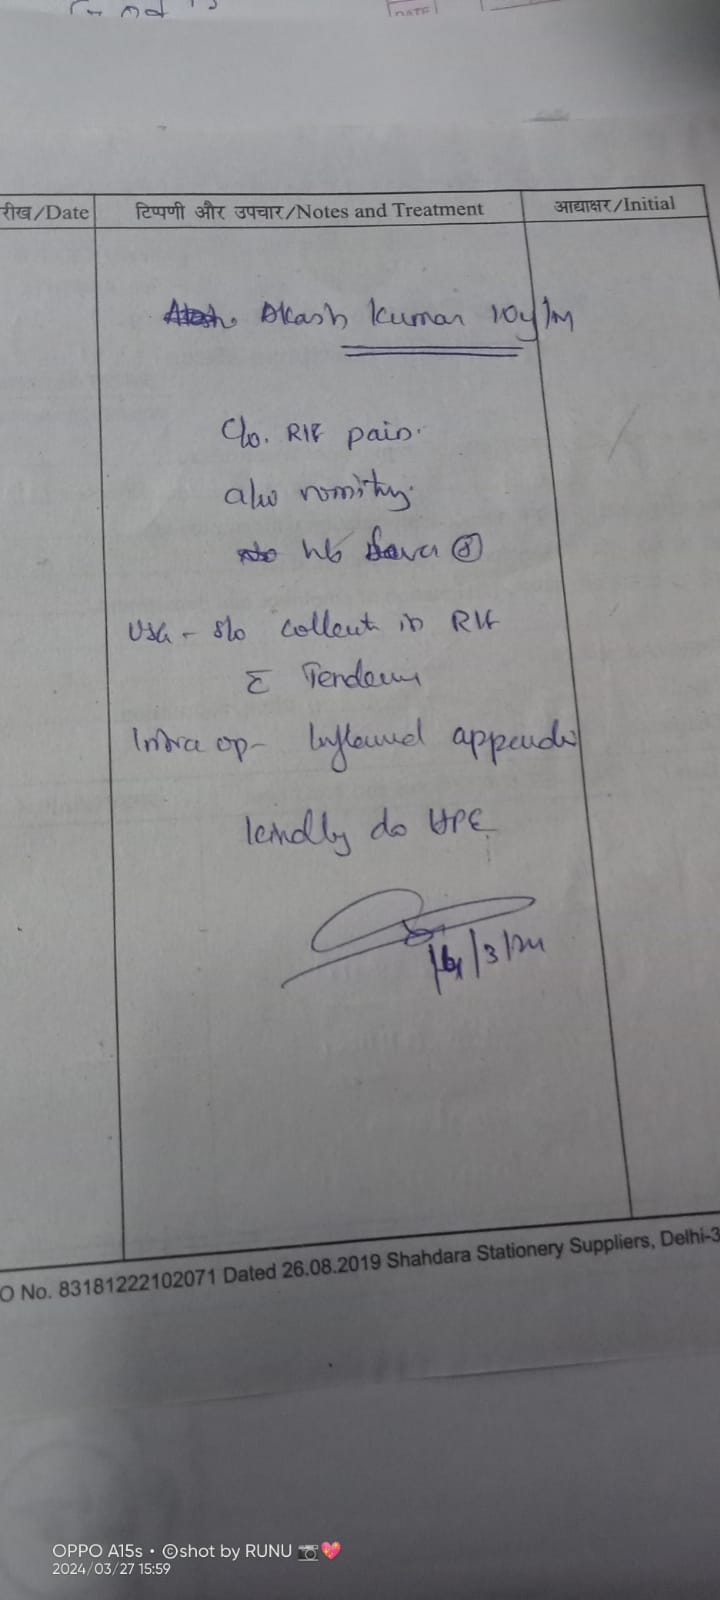 रीख/Date टिप्पणी और उपचार/Notes and Treatment आद्याक्षर/Initial
Akash Kumar 10y/M
C/o. RIF pain.
also vomiting.
h/o fever
USG - s/o collect in RIF
c̄ Tenderness
Intra op- Inflamed appendix
kindly do HPE
/3/24
O No. 83181222102071 Dated 26.08.2019 Shahdara Stationery Suppliers, Delhi-3
OPPO A15s · ©shot by RUNU 📷💖
2024/03/27 15:59